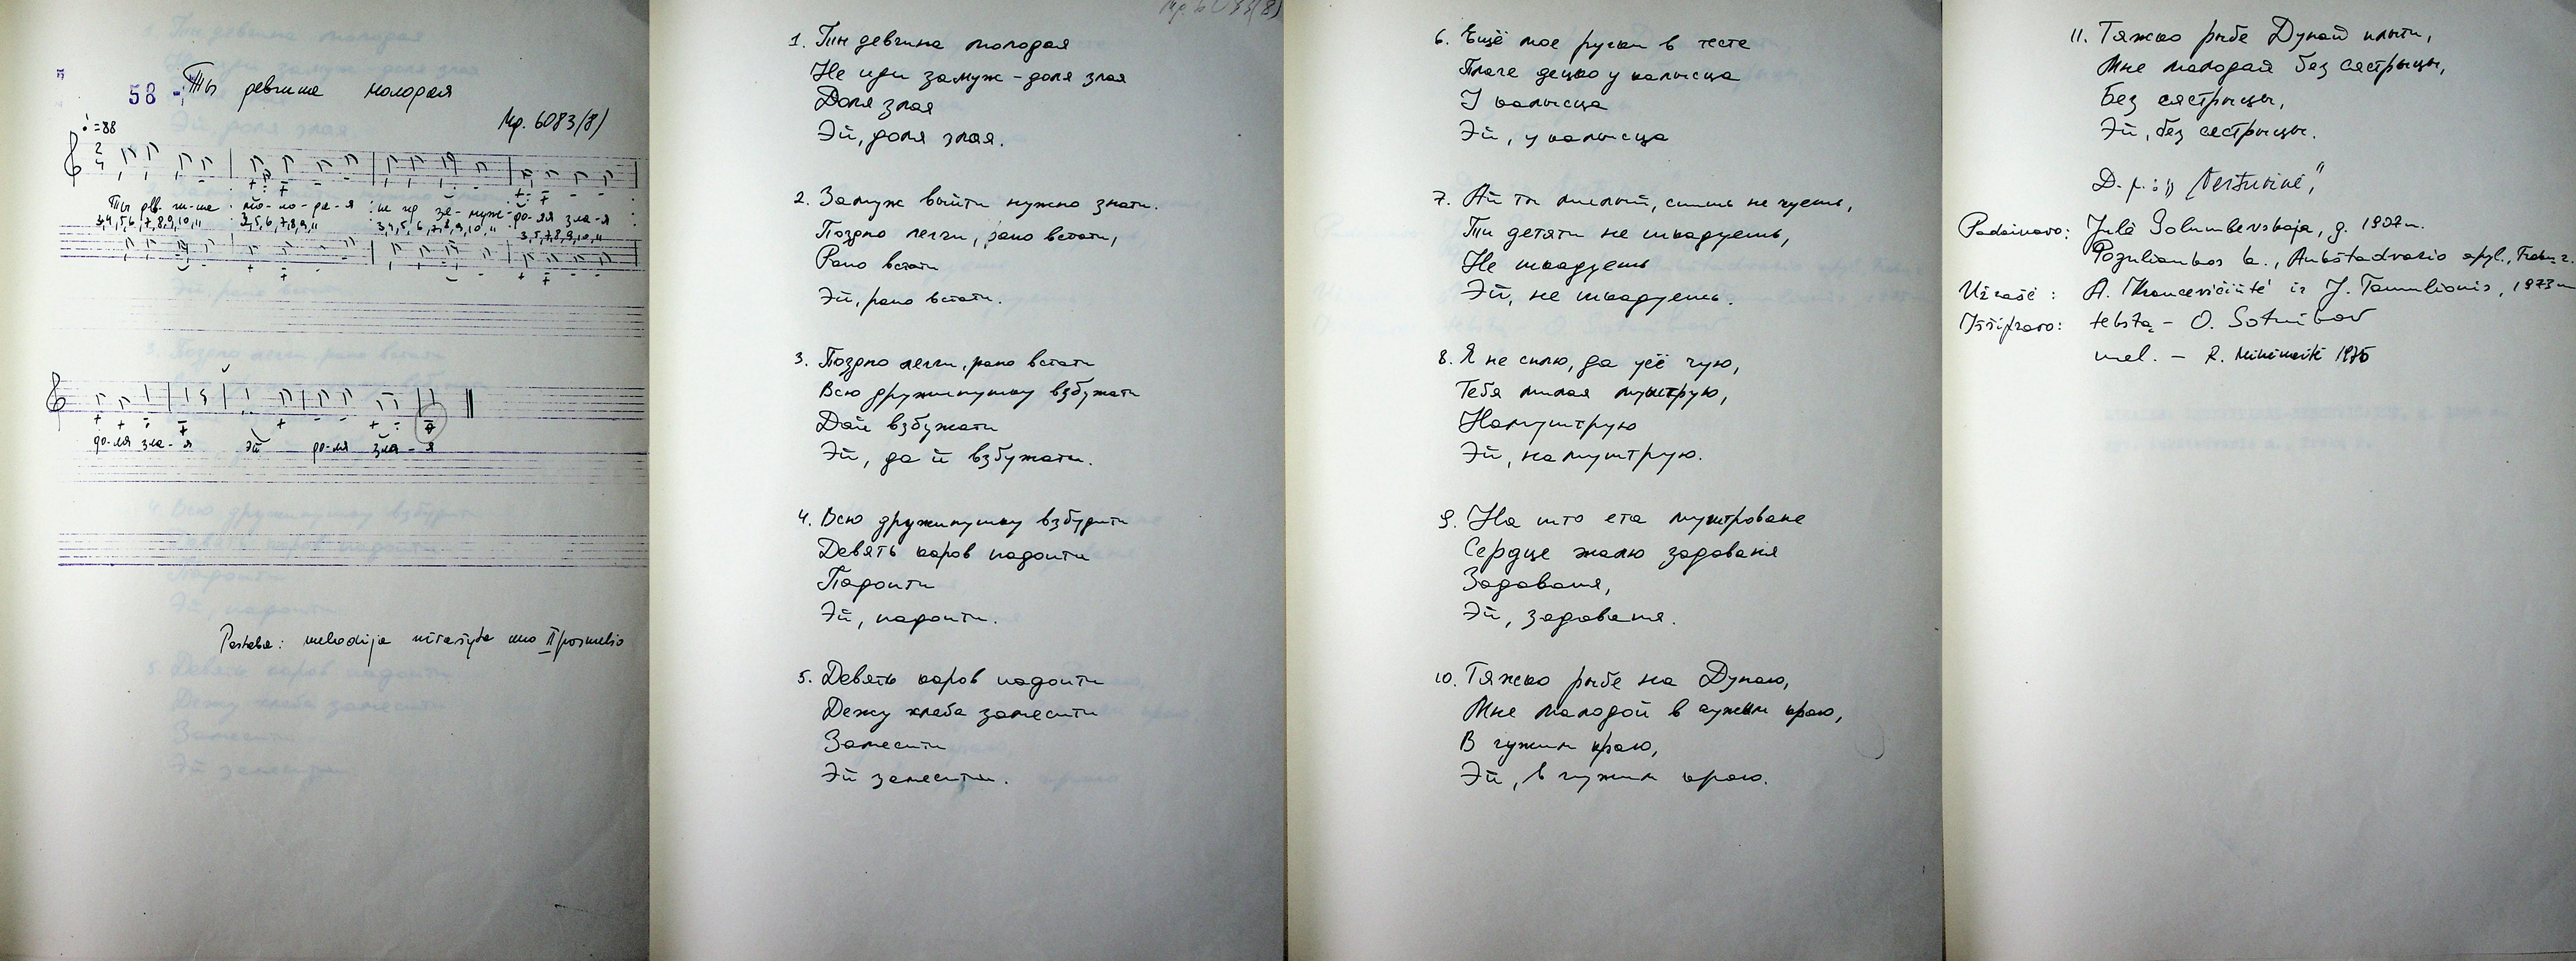 58
Ты девчина молодая
Мр. 6083/8/
=88
2
4
Ты дев-чи-на мо-ло-да-я не ид за-муж-до-ля зла-я
3,4,5,6,7,8,9,10,11 3,5,6,7,8,9,11 3,4,5,6,7,8,9,10,11 3,5,7,8,9,10,11
до-ля зла-я эй до-ля зла-я
Pastaba: melodija užrašyta nuo II posmelio
Мр. 6083(8)
1. Ти девчина молодая
Не иди замуж - доля злая
Доля злая
Эй, доля злая.
2. Замуж выйти нужно знати.
Поздно легги, рано встати,
Рано встати
Эй, рано встати.
3. Поздно легги, рано встати
Всю дружинушку взбужати
Дай взбужати
Эй, да й взбужати.
4. Всю дружинушку взбудити
Девять каров падоити
Падоити
Эй, падоити.
5. Девять каров падоити
Дежу хлеба замесити
Замесити
Эй замесити.
6. Ещё мое ручки в тесте
Плаче децко у калысца
У калысца
Эй, у калысца
7. Ай ты милый, спишь не чуешь,
Ти детяти не шкадуешь,
Не шкадуешь
Эй, не шкадуешь.
8. Я не сплю, да усё чую,
Тебя милая муштрую,
Намуштрую
Эй, намуштрую.
9. На што ета муштроване
Сердце жалю задаваня
Задаваня,
Эй, задаваня.
10. Тяжко рыбе на Дунаю,
Мне маладой в чужим краю,
В чужим краю,
Эй, в чужим краю.
11. Тяжко рыбе Дунай плыти,
Мне маладай без сястрыцы,
Без сястрыцы,
Эй, без сестрыцы.
D. p.: „Nestuvinė"
Padainavo: Julė Golumbevskaja, g. 1907 m.
k., Aukštadvario apyl., Trakų r.
Užrašė: A. Krancevičiūtė ir J. Tamulionis, 1973 m
Iššifravo: tekstą - O. Sotnikov
mel. - R. 1975